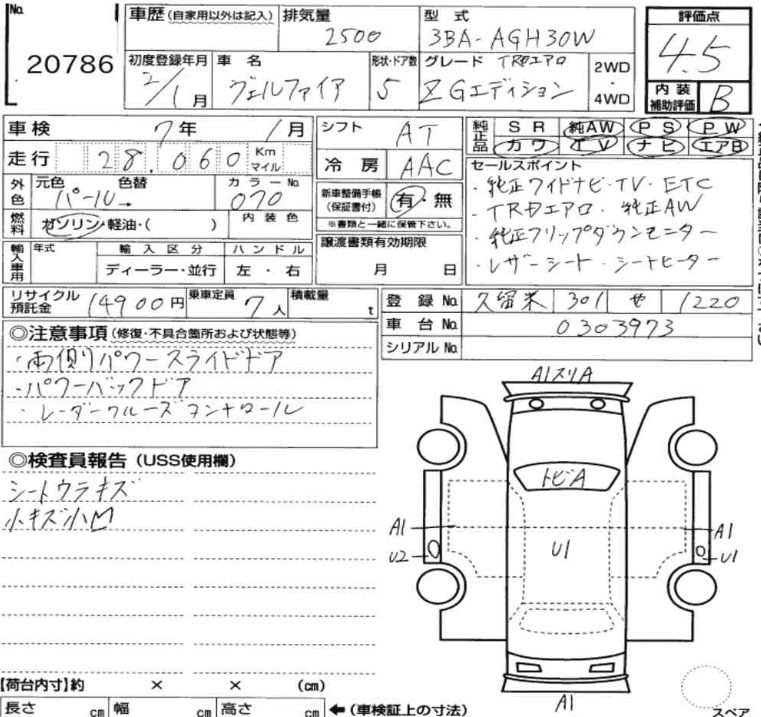 No. 20786
車歴(自家用以外は記入) 排気量 2500 型式 3BA-AGH30W 評価点 4.5
初度登録年月 2/1月 車名 ヴェルファイア 形状・ドア数 5 グレード TRDエアロ ZGエディション 2WD・4WD 内装補助評価 B
車検 7年 1月 シフト AT 純正品 SR 純AW PS PW
走行 28,060 Km マイル 冷房 AAC カワ TV ナビ エアB
外色 元色 パール→ 色替 カラーNo. 070 新車整備手帳(保証書付) 有・無
燃料 ガソリン・軽油・( ) 内装色 ※書類と一緒に保管下さい。
輸入車用 年式 輸入区分 ディーラー・並行 ハンドル 左・右 譲渡書類有効期限 月 日
セールスポイント
・純正ワイドナビ・TV・ETC
・TRDエアロ・純正AW
・純正フリップダウンモニター
・レザーシート・シートヒーター
リサイクル預託金 14900円 乗車定員 7人 積載量 t
登録No. 久留米 301 せ 1220
車台No. 0303973
シリアルNo.
◎注意事項(修復・不具合箇所および状態等)
・両側パワースライドドア
・パワーバックドア
・レーダークルーズコントロール
◎検査員報告(USS使用欄)
シートウラキズ
小キズ小凹
A1スリA
トビA
A1 A1
U2 U1 U1
A1
【荷台内寸】約 × × (cm)
長さ cm 幅 cm 高さ cm ←(車検証上の寸法)
スペア